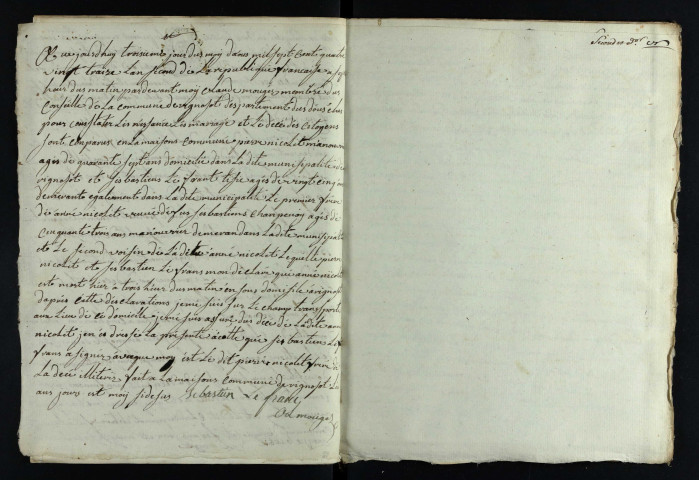 Aujourdhuy troisieme jour du moy daus mil sept cents quatre
vingt traize Lan second de La republique francoise a sept
heur du matin par devant moy Claude mougé membre du
conseille de La commune de vignosot departement du doub élus
pour constater Les naissance Les mariage et Le decé des Citoyens
sont comparus en La maisons commune pierre nicolit manouvrier
agés de quarante sept ans domicilié dans La dite munisipalité
vignosot et sebastiens Le franc agés de vingt cinq
demeurante egalement dans La dite munisipalité Le premier frere
de anné nicolit veuve de fus sebastiens champenoy agés de
cinquante trois ans manouvrier demeuran dans La dite munisipalité
et Le second voisin de La dite anné nicolit Lequelle pierre
nicolit et sebastien Le frans mon declaré que anné nicolit
este mort hier à trois hieur du matin en sons domisile a vignosot
dapres cette declarations je me suis sur Le champ transporté
aux Lieu de ce domicile je me suis assuré du décé de La dite anné
nicolit jen ai dressé La presente acette que sebastien Le
frans a signer avecque moy est Le dit pierre nicolit frere
La déce illitere fait a La maisons commune de vignosot Le
aus jours est moy sidesus Sebastien Le franc
Cl mougé
Second et d.er